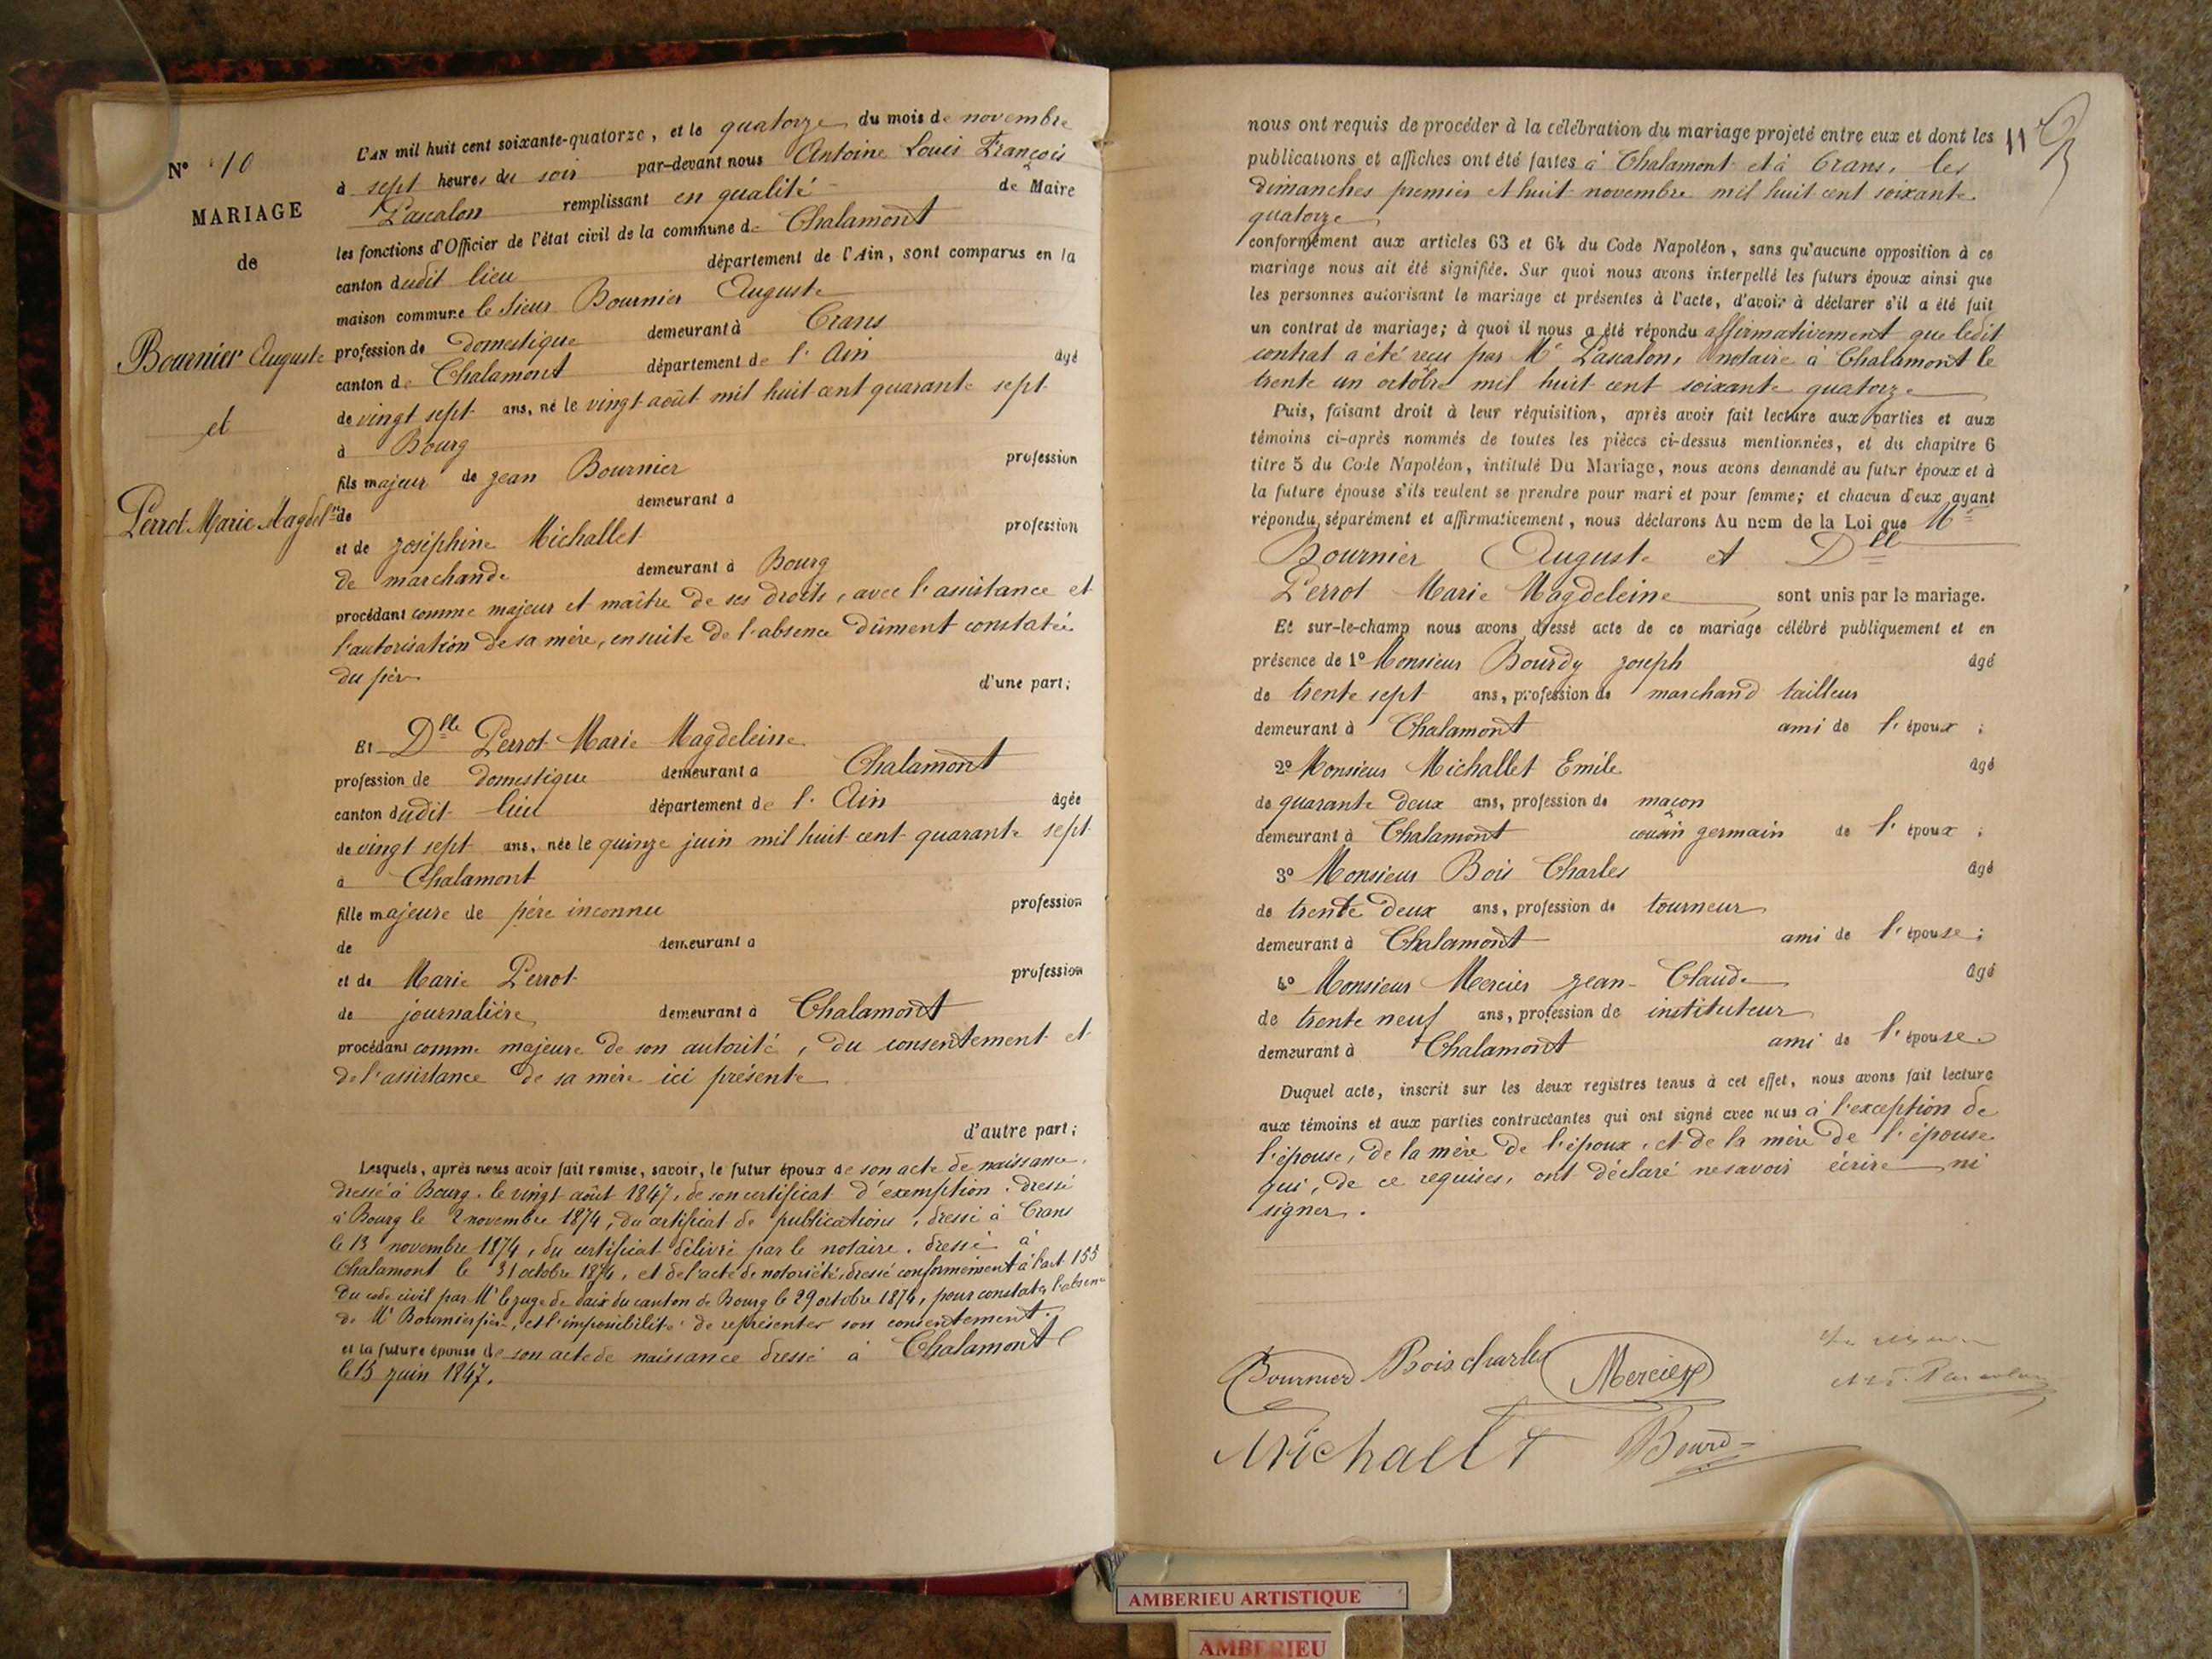 N° 10
MARIAGE
de
Bournier Auguste
et
Perrot Marie Magdel.ne
L'AN mil huit cent soixante-quatorze, et le quatorze du mois de novembre
à sept heures du soir par-devant nous Antoine Louis François
Pascalon remplissant en qualité de Maire
les fonctions d'Officier de l'état civil de la commune de Chalamont
canton dudit lieu département de l'Ain, sont comparus en la
maison commune le sieur Bournier Auguste
profession de domestique demeurant à Crans
canton de Chalamont département de l'Ain âgé
de vingt sept ans, né le vingt août mil huit cent quarante sept
à Bourg
fils majeur de Jean Bournier profession
de demeurant à
et de Joséphine Michallet profession
de marchande demeurant à Bourg
procédant comme majeur et maître de ses droits, avec l'assistance et
l'autorisation de sa mère, ensuite de l'absence dûment constatée
du père d'une part;
Et Dlle Perrot Marie Magdeleine
profession de domestique demeurant à Chalamont
canton dudit lieu département de l'Ain âgée
de vingt sept ans, née le quinze juin mil huit cent quarante sept
à Chalamont
fille majeure de père inconnu profession
de demeurant à
et de Marie Perrot profession
de journalière demeurant à Chalamont
procédant comme majeure de son autorité, du consentement et
de l'assistance de sa mère ici présente
d'autre part;
Lesquels, après nous avoir fait remise, savoir, le futur époux de son acte de naissance,
dressé à Bourg, le vingt août 1847, de son certificat d'exemption, dressé
à Bourg le 2 novembre 1874, du certificat de publications, dressé à Crans
le 13 novembre 1874, du certificat délivré par le notaire, dressé à
Chalamont le 31 octobre 1874, et de l'acte de notoriété, dressé conformément à l'art. 155
du code civil par Mr le juge de paix du canton de Bourg le 29 octobre 1874, pour constater l'absence
de Mr Bournier père, et l'impossibilité de représenter son consentement.
et la future épouse de son acte de naissance dressé à Chalamont
le 15 juin 1847.
nous ont requis de procéder à la célébration du mariage projeté entre eux et dont les 11
publications et affiches ont été faites à Chalamont et à Crans, les
dimanches premier et huit novembre mil huit cent soixante
quatorze
conformément aux articles 63 et 64 du Code Napoléon, sans qu'aucune opposition à ce
mariage nous ait été signifiée. Sur quoi nous avons interpellé les futurs époux ainsi que
les personnes autorisant le mariage et présentes à l'acte, d'avoir à déclarer s'il a été fait
un contrat de mariage; à quoi il nous a été répondu affirmativement que ledit
contrat a été reçu par Me Pascalon, notaire à Chalamont le
trente un octobre mil huit cent soixante quatorze
Puis, faisant droit à leur réquisition, après avoir fait lecture aux parties et aux
témoins ci-après nommés de toutes les pièces ci-dessus mentionnées, et du chapitre 6
titre 5 du Code Napoléon, intitulé Du Mariage, nous avons demandé au futur époux et à
la future épouse s'ils veulent se prendre pour mari et pour femme; et chacun d'eux ayant
répondu séparément et affirmativement, nous déclarons Au nom de la Loi que Mr
Bournier Auguste et Dlle
Perrot Marie Magdeleine sont unis par le mariage.
Et sur-le-champ nous avons dressé acte de ce mariage célébré publiquement et en
présence de 1° Monsieur Bourdy Joseph âgé
de trente sept ans, profession de marchand tailleur
demeurant à Chalamont ami de l'époux;
2° Monsieur Michallet Emile âgé
de quarante deux ans, profession de maçon
demeurant à Chalamont cousin germain de l'époux;
3° Monsieur Bois Charles âgé
de trente deux ans, profession de tourneur
demeurant à Chalamont ami de l'épouse;
4° Monsieur Mercier Jean-Claude âgé
de trente neuf ans, profession de instituteur
demeurant à Chalamont ami de l'épouse
Duquel acte, inscrit sur les deux registres tenus à cet effet, nous avons fait lecture
aux témoins et aux parties contractantes qui ont signé avec nous à l'exception de
l'épouse, de la mère de l'époux, et de la mère de l'épouse
qui, de ce requises, ont déclaré ne savoir écrire ni
signer.
Bournier Bois Charles Mercier
Michallet Bourd
AMBERIEU ARTISTIQUE
AMBERIEU